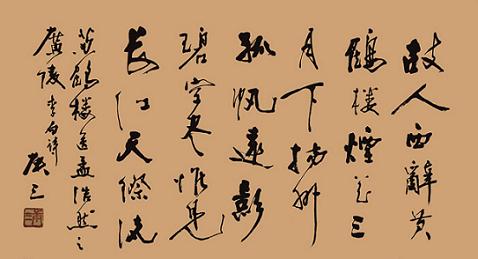 故人西辭黃
鶴樓煙花三
月下揚州
孤帆遠影
碧空尽惟見
長江天際流
黃鶴樓送孟浩然之
廣陵 李白詩